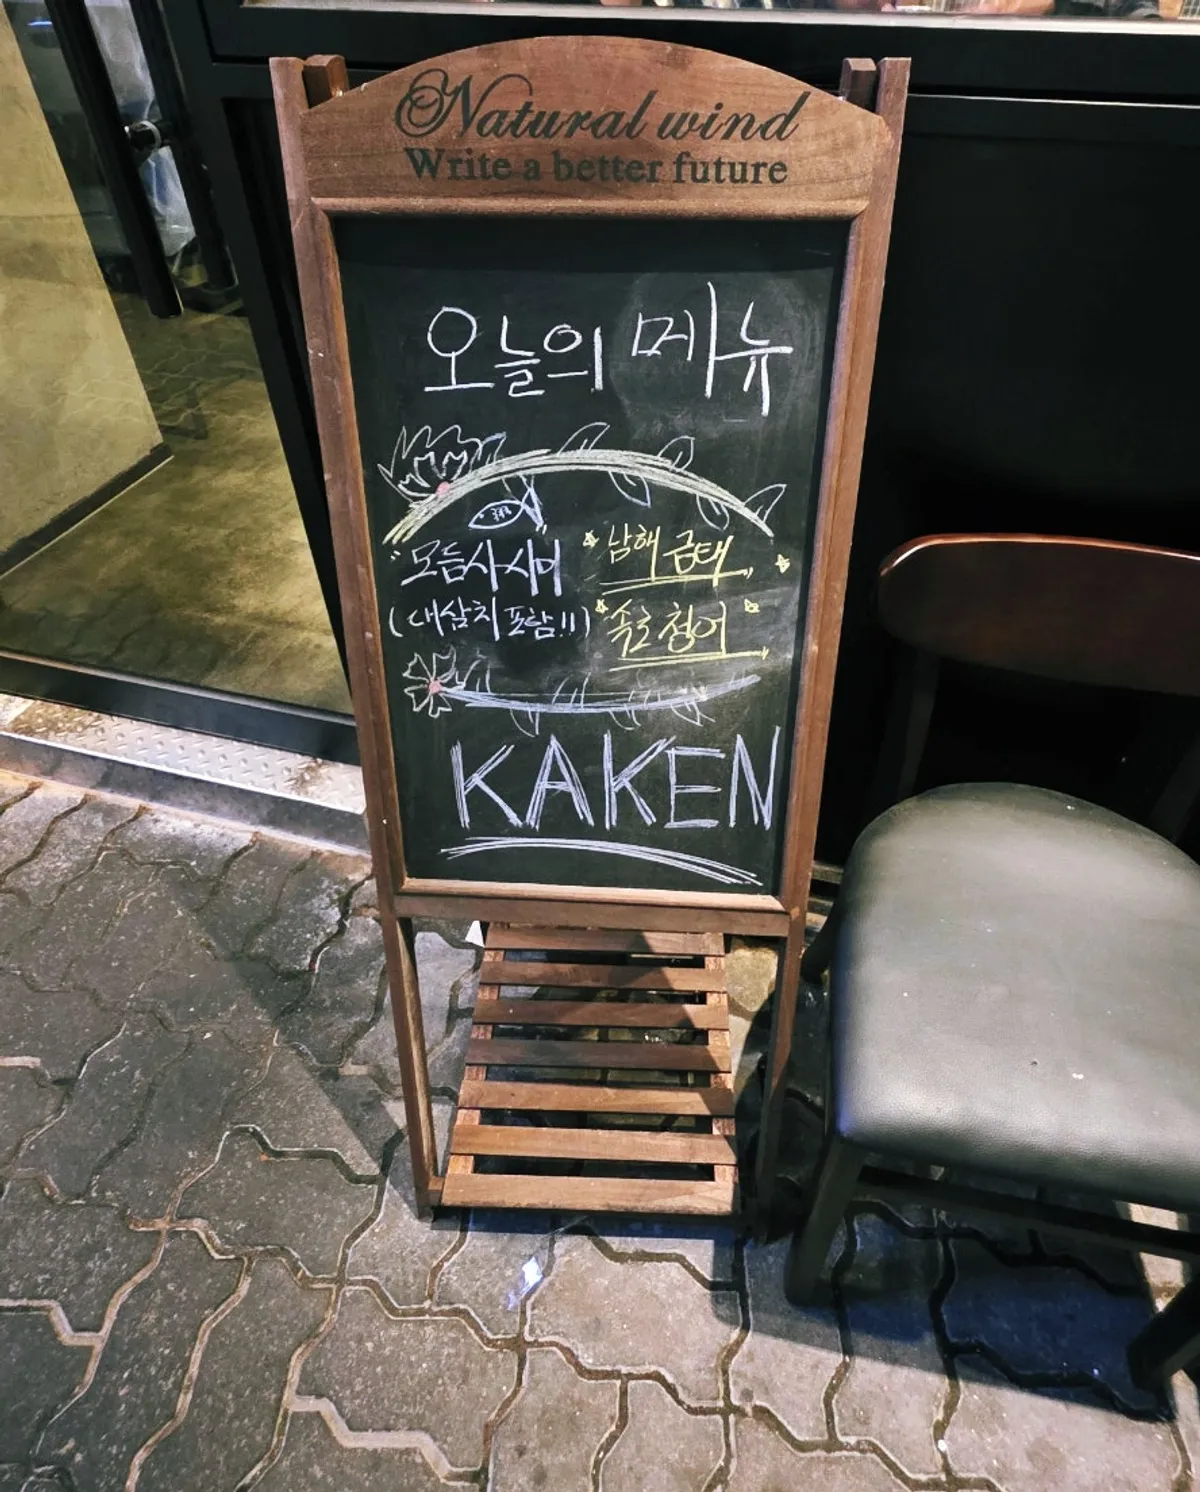 Natural wind
Write a better future
오늘의 메뉴
"모듬사시미 남해 금태"
(대삼치 포함!!) 속초 청어
KAKEN